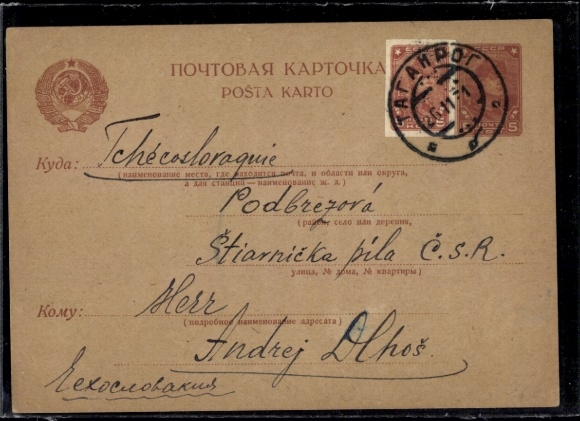 ПОЧТОВАЯ КАРТОЧКА
POŜTA KARTO
ТАГАНРОГ
Куда: Tchécoslovaquie
(наименование место, где находится почта, и области или округа,
а для станций—наименование ж. д.)
Podbrezová
(район, село или деревня,
Štiavnička píla Č.S.R.
улица, № дома, № квартиры)
Кому: Herr
(подробное наименование адресата)
Andrej Dlhoš.
Чехословакия